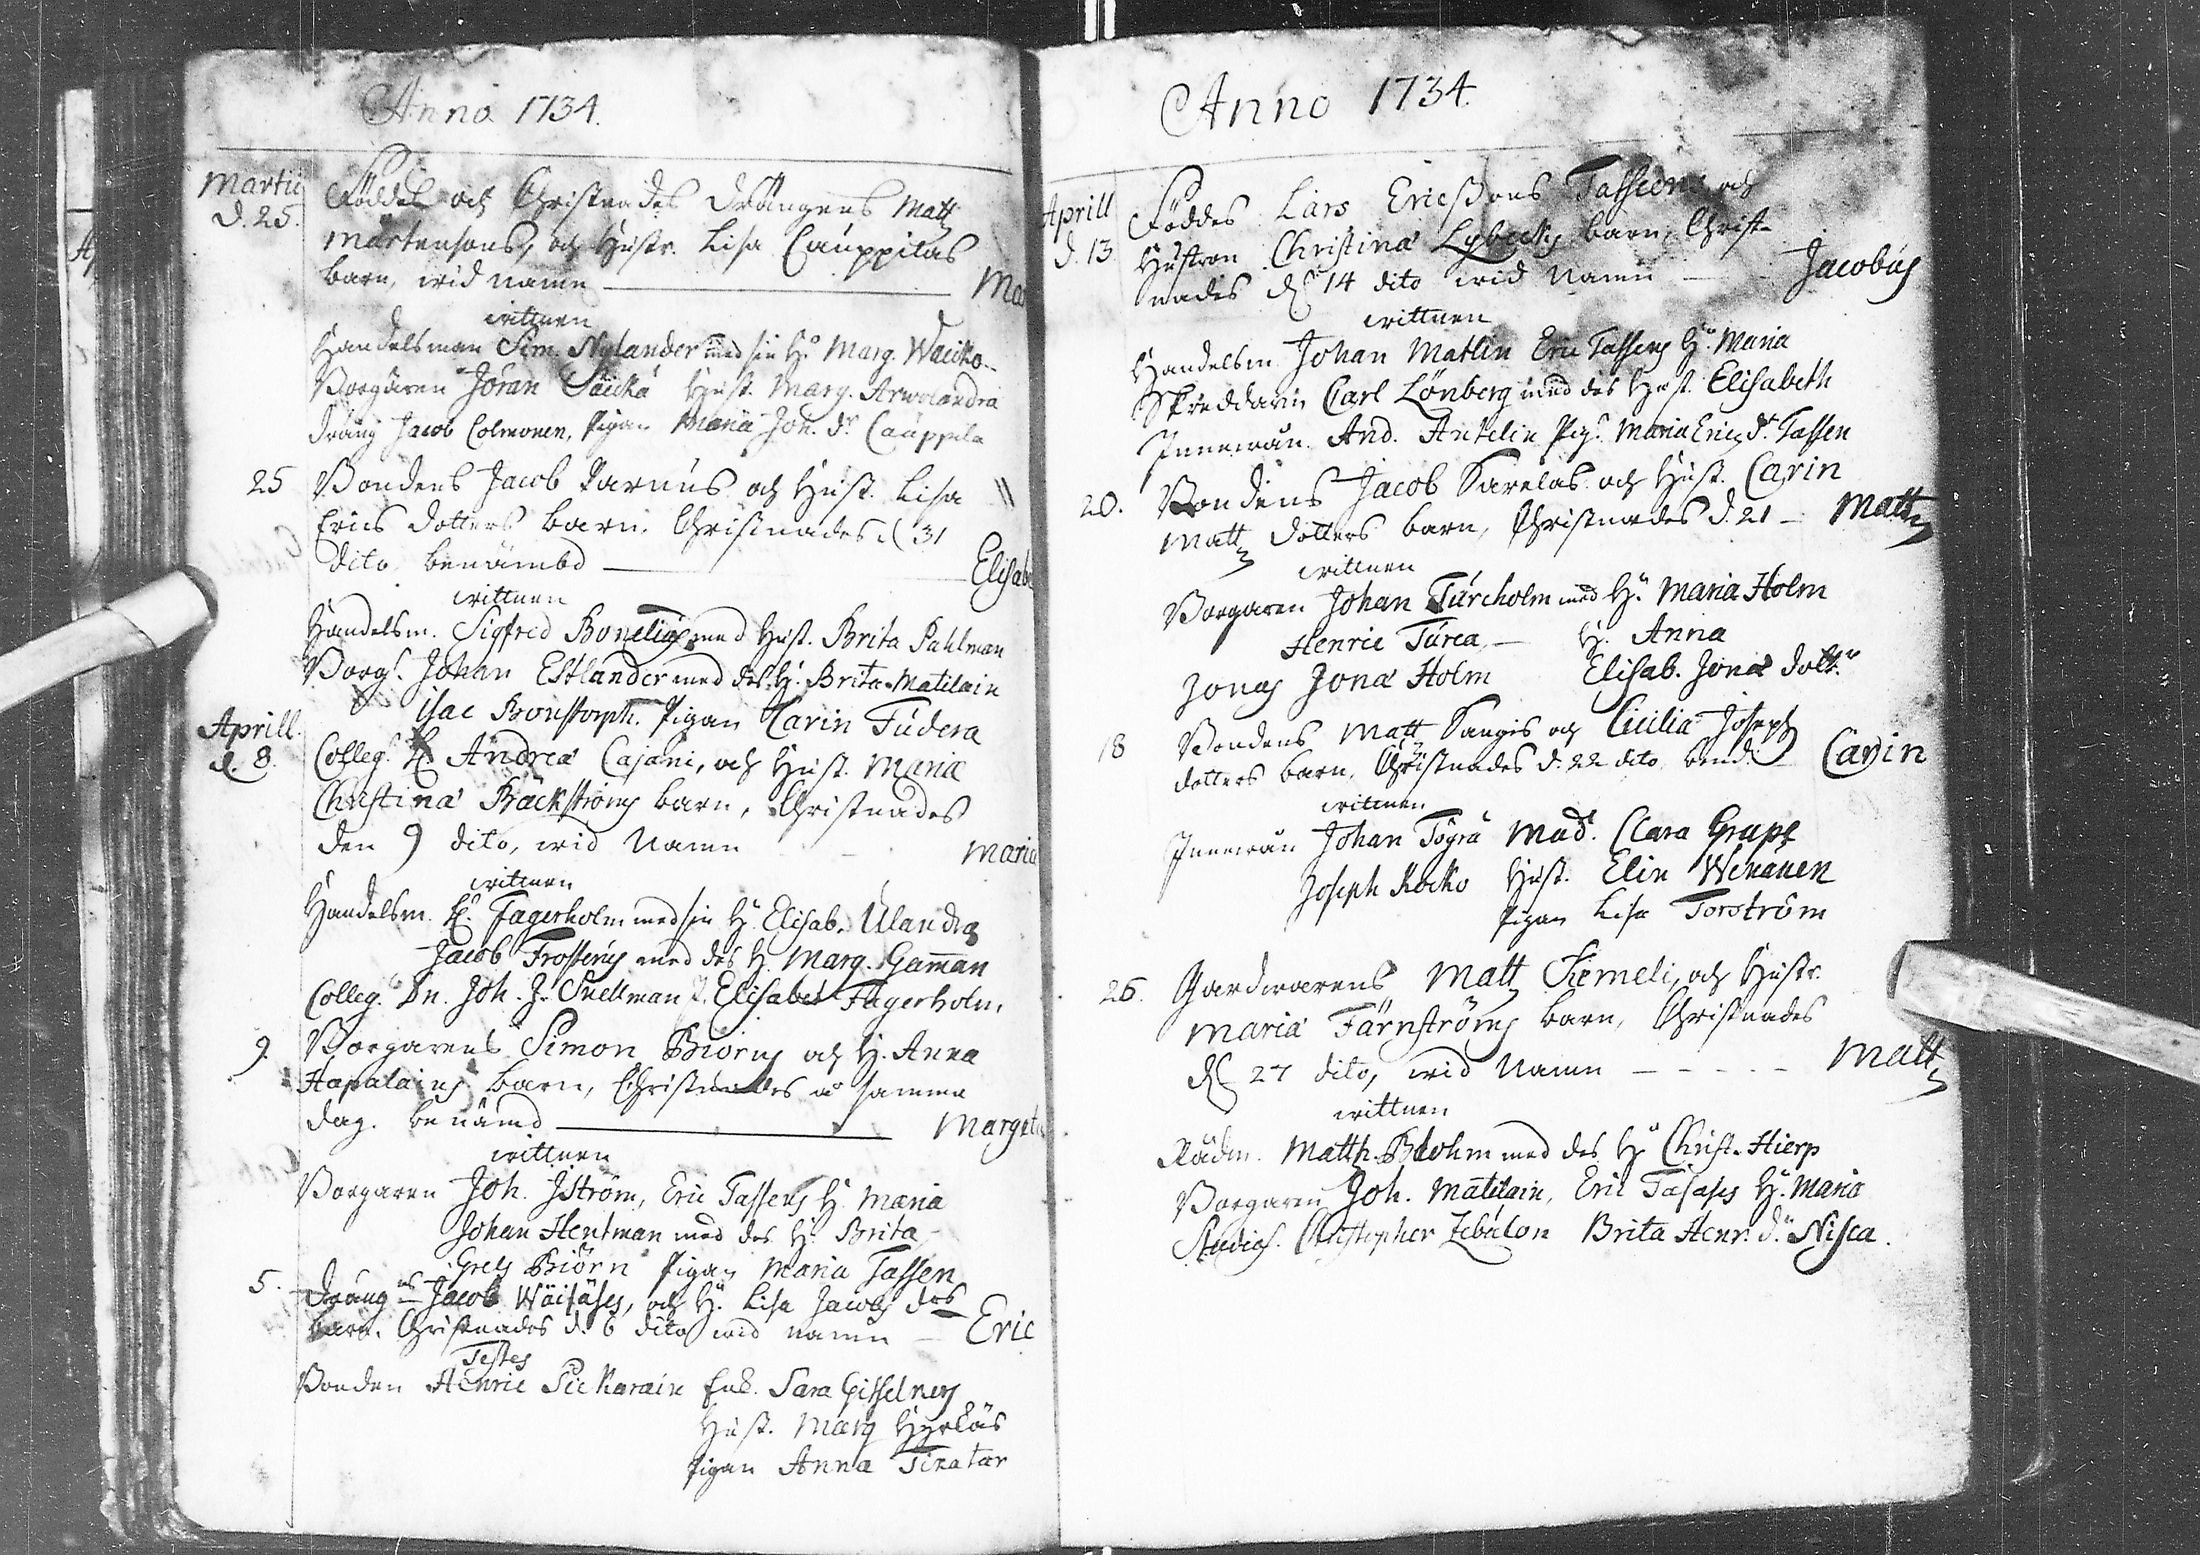 Anno 1734.
Martii
d. 25.
Föddes och Christnades Drängens Matts
Mårtensons, och Hustr. Lisa Cauppilas
barn, wid namn
wittnen
Handelsman Sim. Nylander med sin H. Marg. Wacklo
Borgaren Jöran Hust. Marg. Arwolandra
Dräng Jacob Colmonen, Pigan Maria Joh. dr Cauppila
25 Bondens Jacob Parnus och Hust. Lisa
Erics dotters barn, Christnades d. 31
dito benämbd Elisab
wittnen
Handelsm. Sigfred Bonelius med Hust. Brita Pahlman
Borg. Johan Estlander med des H. Brita Matilain
Isac Bonstorph. Pigan Carin Tudera
Aprill.
d. 8.
Colleg. H. Andreæ Cajani, och Hust. Maria
Christina Bäckströms barn, Christnades
den 9 dito, wid Namn Maria
wittnen
Handelsm. H. Fagerholm med sin H. Elisab. Ulandra
Jacob Frosterus med des H. Marg. Gamman
Colleg. Dn. Joh. J. Snellman J. Elisabet Fagerholm.
9. Borgarens Simon Biörns och H. Anna
Hapalains barn, Christnades å samma
dag. benämd Margeta
wittnen
Borgaren Joh. Jström, Eric Tassens H. Maria
Johan Hentman med des H. Brita
Grels Biörn Pigan Maria Tassen
5. Drängens Jacob Wäisäses, och H. Lisa Jacobs drs
barn. Christnades d. 6 dito wid namn Eric
Testes
Bonden Henric Pickarain Enk. Sara Gisselners
Hust. Marg Hyrkäs
Pigan Anna Tiratar
Anno 1734.
Aprill
d. 13
Föddes Lars Ericssons Tassens och
Hustron Christina Lybecks barn, Christ-
nades d. 14 dito wid Namn Jacobus
wittnen
Handelsm. Johan Matlin Eric Tassens H. Maria
Skreddarn Carl Lönberg med des Hust. Elisabeth
Innewån. And. Antelin Pig. Maria Erics dr. Tassen
20. Bondens Jacob Karelas och Hust. Carin
Matts dotters barn, Christnades d. 21 - Matts
wittnen
Borgaren Johan Turcholm med H. Maria Holm
Henric Turca, - H. Anna
Jonas Jonæ Holm Elisab. Jonæ dott.
18 Bondens Matts Kangis och Cicilia Josephs
dotters barn. Christnades d. 22 dito bend. Carin
wittnen
Innewån Johan Tögrä Mad. Clara Grape
Joseph Kocko Hust. Elin Wenänen
Pigan Lisa Torström
26. Gardwarens Matts Kemeli, och Hustr.
Maria Färnströms barn, Christnades
d. 27 dito, wid Namn - - - - - Matts
wittnen
Rådm. Matth. Blohm med des H. Christ. Hierp
Borgaren Joh. Matilain, Eric Tasases H. Maria
Studios. Christopher Zebulon Brita Henr. dr. Nisca.